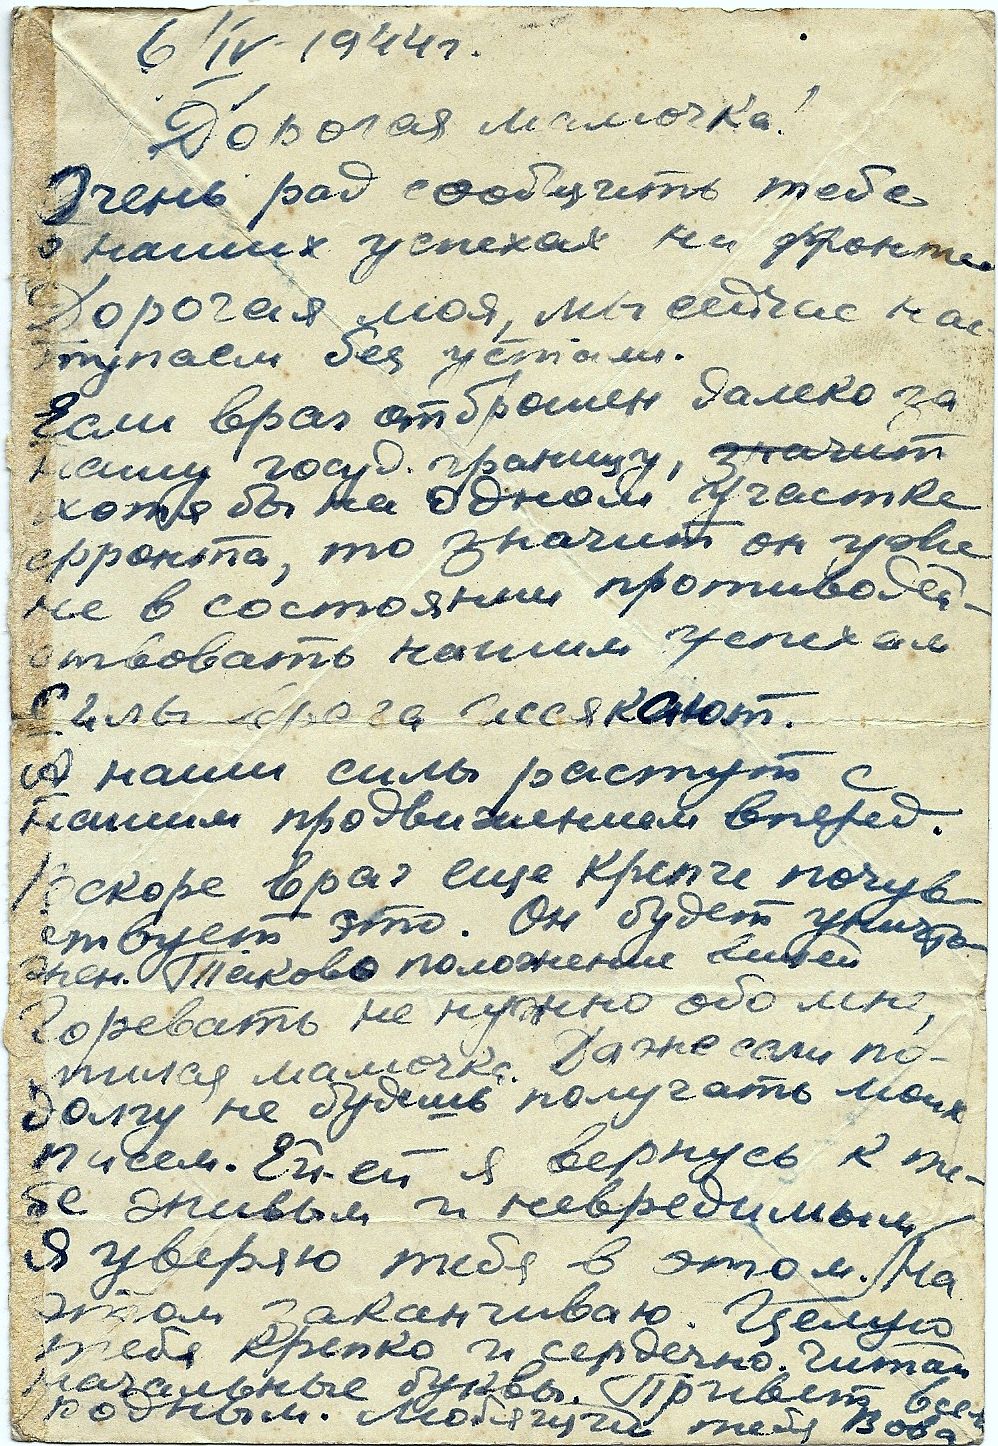 6/IV-1944г.
Дорогая мамочка!
Очень рад сообщить тебе
о наших успехах на фронте
Дорогая моя, мы сейчас нас-
тупаем без устали.
Если враг отброшен далеко за
нашу госуд. границу, значит
хотя бы на одном участке
фронта, то значит он уже
не в состоянии противодей-
ствовать нашим успехам
Силы врага иссякают.
А наши силы растут с
нашим продвижением вперед.
Вскоре враг еще крепче почув-
ствует это. Он будет уничто-
жен. Таково положение вещей
Горевать не нужно обо мне,
милая мамочка. Даже если по-
долгу не будешь получать моих
писем. Ей-ей я вернусь к те-
бе живым и невредимым
Я уверяю тебя в этом. На
этом заканчиваю. Целую
тебя крепко и сердечно. Читай
начальные буквы. Привет всем
родным. Любящий тебя Вова